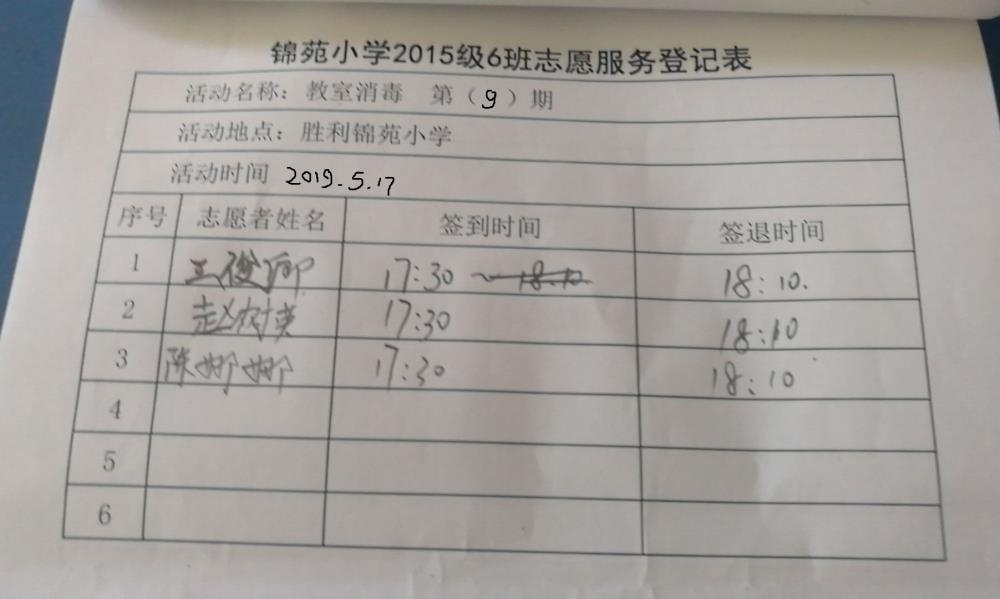 锦苑小学2015级6班志愿服务登记表
活动名称：教室消毒 第（9）期
活动地点：胜利锦苑小学
活动时间 2019.5.17
序号 志愿者姓名 签到时间 签退时间
1 王俊卿 17:30 18:10.
2 赵树英 17:30 18:10
3 陈娜娜 17:30 18:10
4
5
6